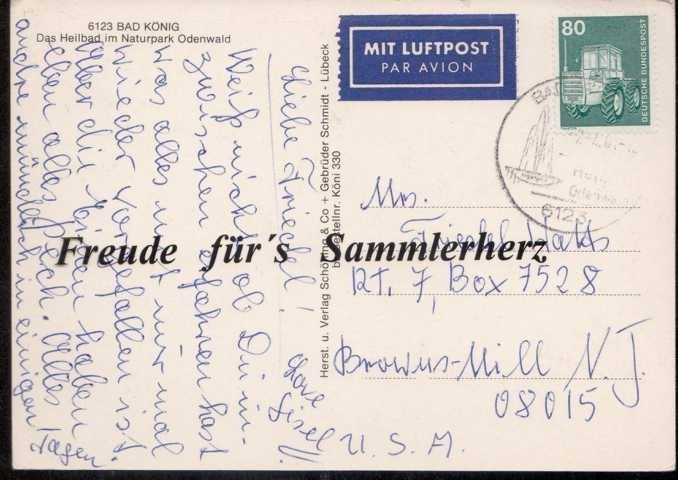 6123 BAD KÖNIG
Das Heilbad im Naturpark Odenwald
Liebe Friedel!
Weiß nicht ob Du in-
zwischen erfahren hast
was alles mit mir mal
wieder vorgefallen ist
Aber die Ärzte haben
eben alles Pech. Alles
andre mündlich in einigen Tagen.
Love
Gisel
Herst. u. Verlag Schöning & Co + Gebrüder Schmidt - Lübeck
Bestellnr. Köni 330
MIT LUFTPOST
PAR AVION
80
DEUTSCHE BUNDESPOST
BAD
6123
Mrs.
Friedel
Rt. 7, Box 7528
Browns-Mill N.J.
08015
U.S.A.
Freude für´s Sammlerherz